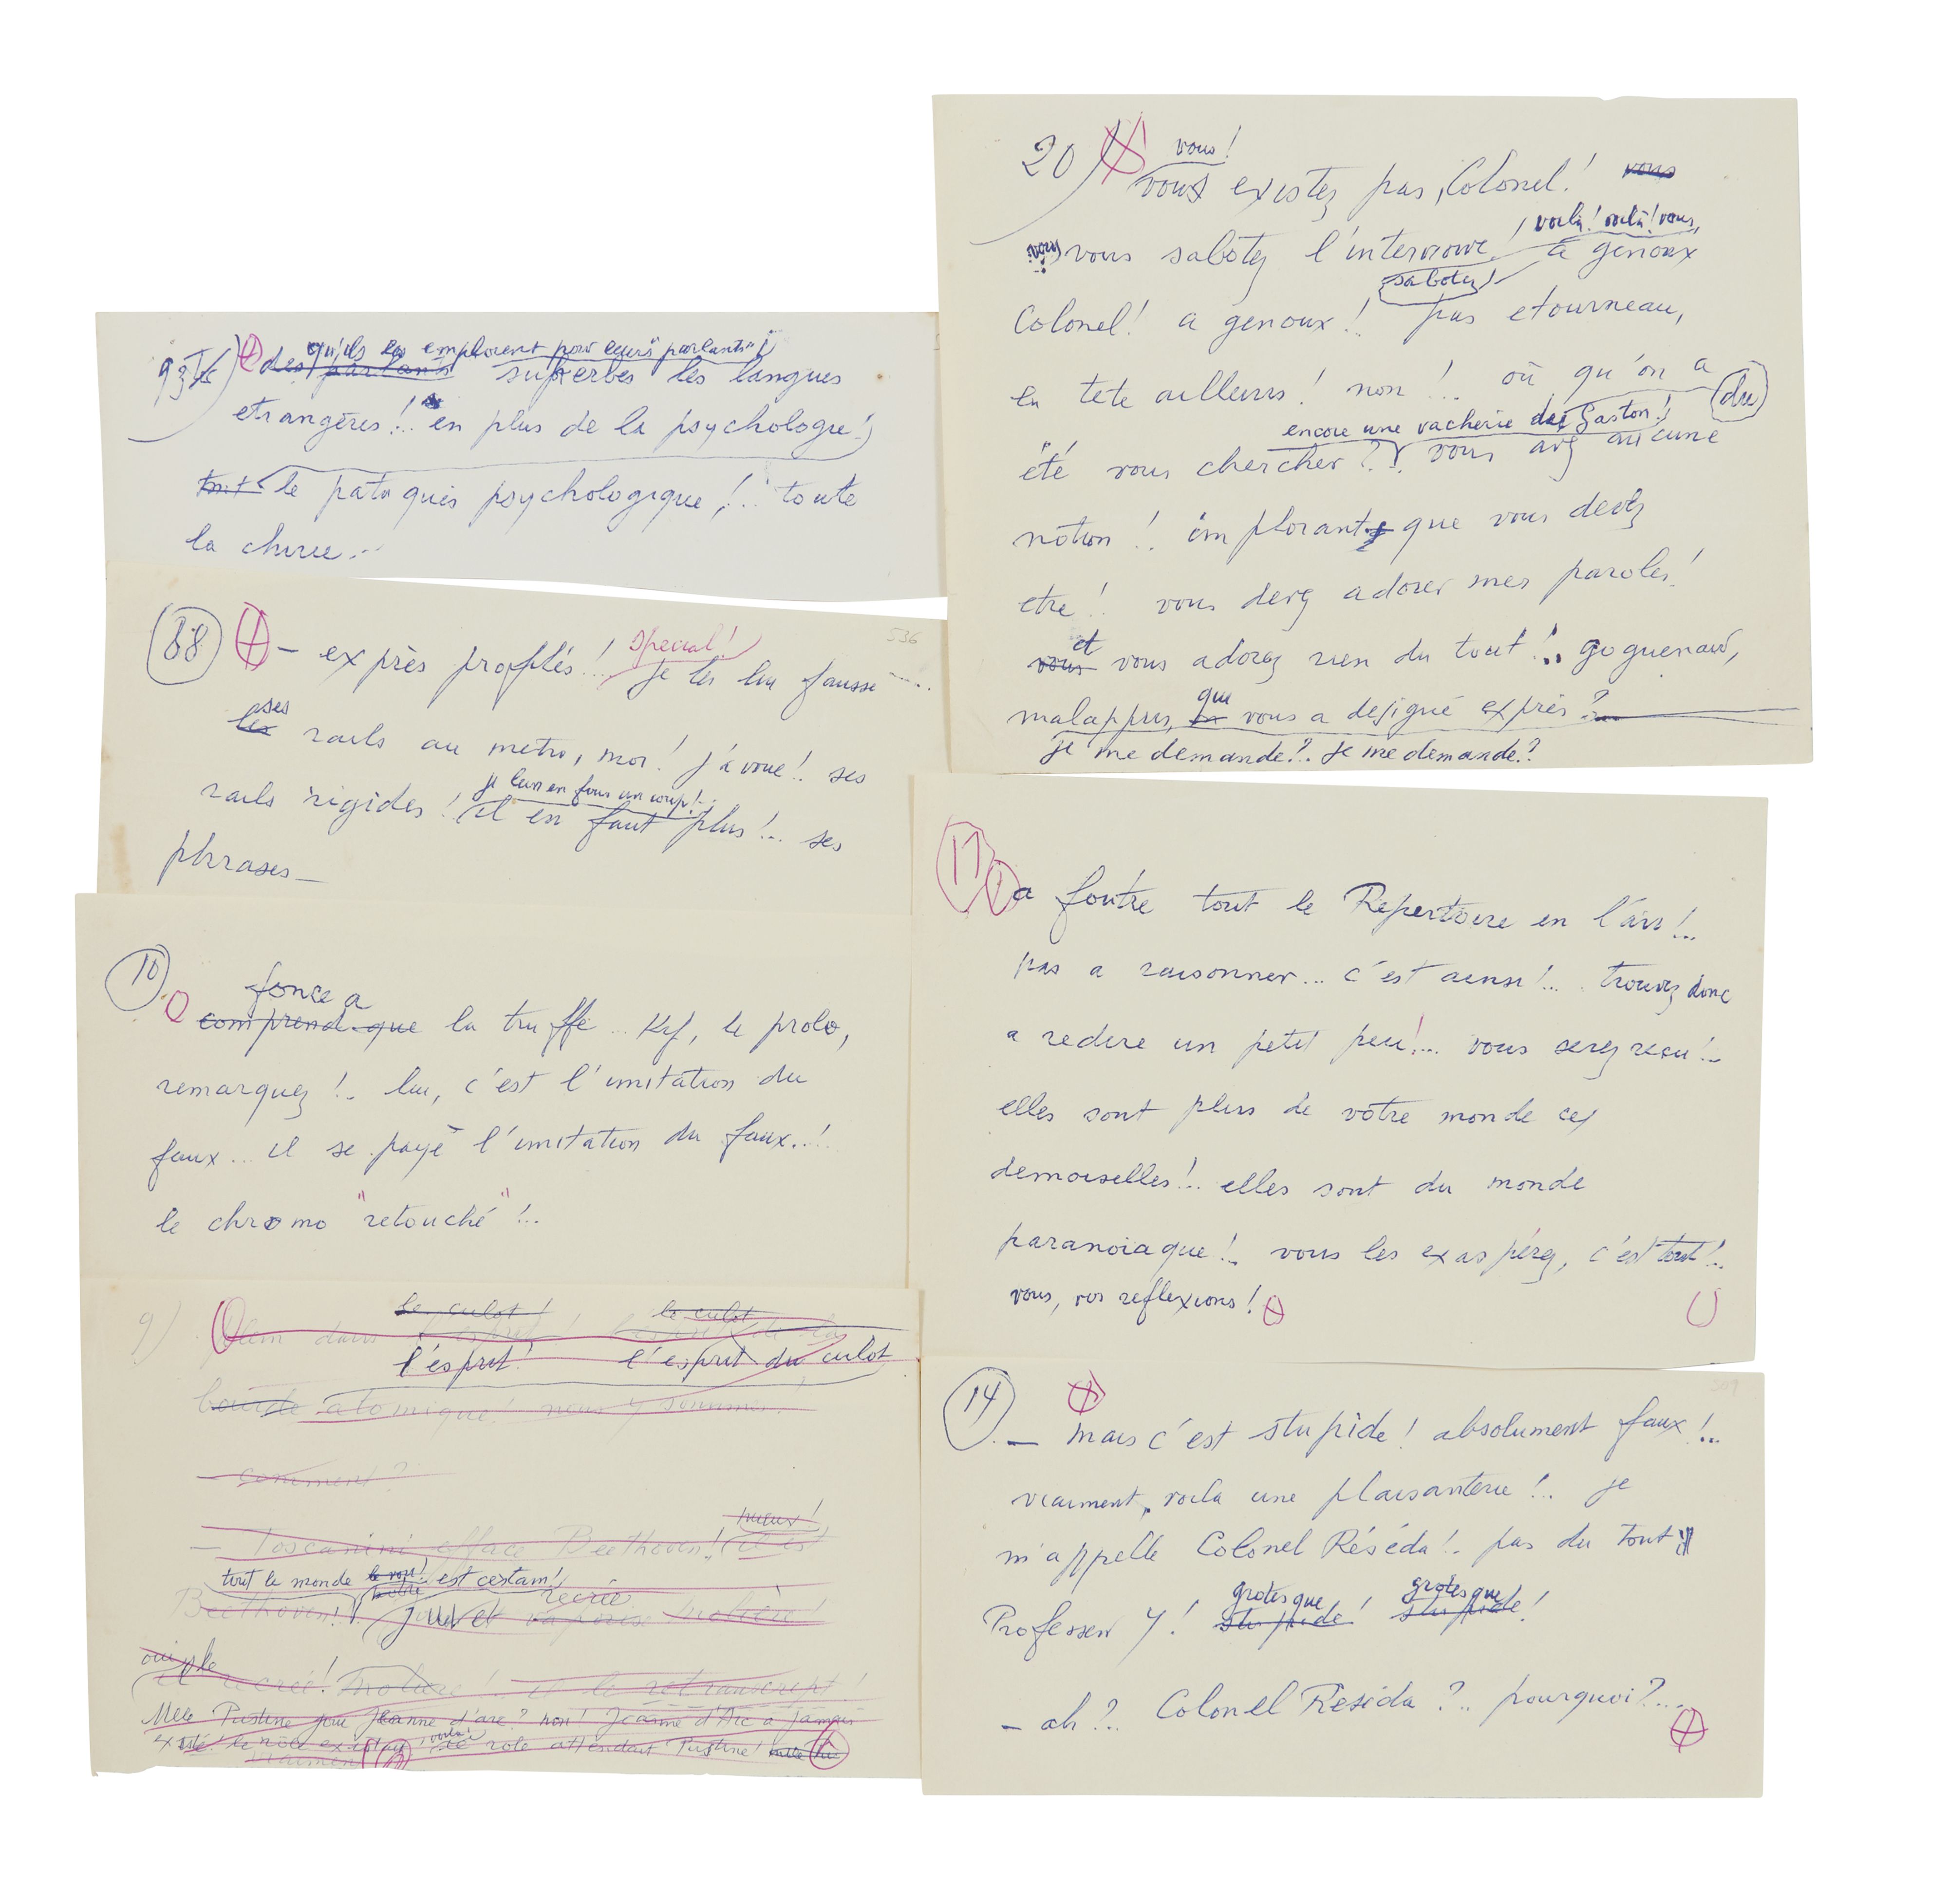 qu'ils les emploient pour leurs "parlants"!
des parlants superbes les langues
etrangères!.. en plus de la psychologie!
tout le pataquès psychologique!... toute
la chierie...
88 - exprès profilés! special! je les lui fausse.....
les ses rails au metro, moi! j'avoue!.. ses
je leur en fous un coup!..
rails rigides! il en faut plus!... ses
phrases_
10
fonce a
comprend que la truffe... Kif, le prolo,
remarquez!.. lui, c'est l'imitation du
faux... il se paye l'imitation du faux..!
le chromo "retouché"!..
9)
le culot! le culot
plein dans
l'esprit! l'esprit du culot
atomique! nous y sommes!
- comment?
mieux!
- Toscanini efface Beethoven! il est
tout le monde le voit! est certain!
recrée
Beethoven!! Jouvet vaporise Molière!
oui, le
recrée! Molière!.. il le retranscript!
Mlle Pustine joue Jeanne d'arc? non! Jeanne d'Arc a jamais
existé! le role existait! voila! le role attendait Pustine!
vraiment
20) vous!
vous existez pas, Colonel! vous
voila! voila! vous,
vous sabotez l'interviouve! a genoux
sabotez!
Colonel! a genoux! pas etourneau,
en tete ailleurs! non!.. où qu'on a
du
encore une vacherie de Gaston!
été vous chercher?? vous avez aucune
notion!.. implorant que vous devez
etre!.. vous devez adorer mes paroles!
et
vous vous adorez rien du tout!.. goguenard,
que
malappris, vous a designé exprès?
je me demande?.. je me demande?
17 a foutre tout le Repertoire en l'air!..
pas a raisonner... c'est ainsi!... trouvez donc
a redire un petit peu!... vous serez reçu!..
elles sont plus de votre monde ces
demoiselles!.. elles sont du monde
paranoiaque!.. vous les exaspérez, c'est tout!..
vous, vos reflexions!
309
14
- mais c'est stupide! absolument faux!..
vraiment, voila une plaisanterie!.. je
m'appelle Colonel Réséda!.. pas du tout
grotesque grotesque
Professeur Y! stupide! stupide!
- ah?.. Colonel Réséda?.. pourquoi?...